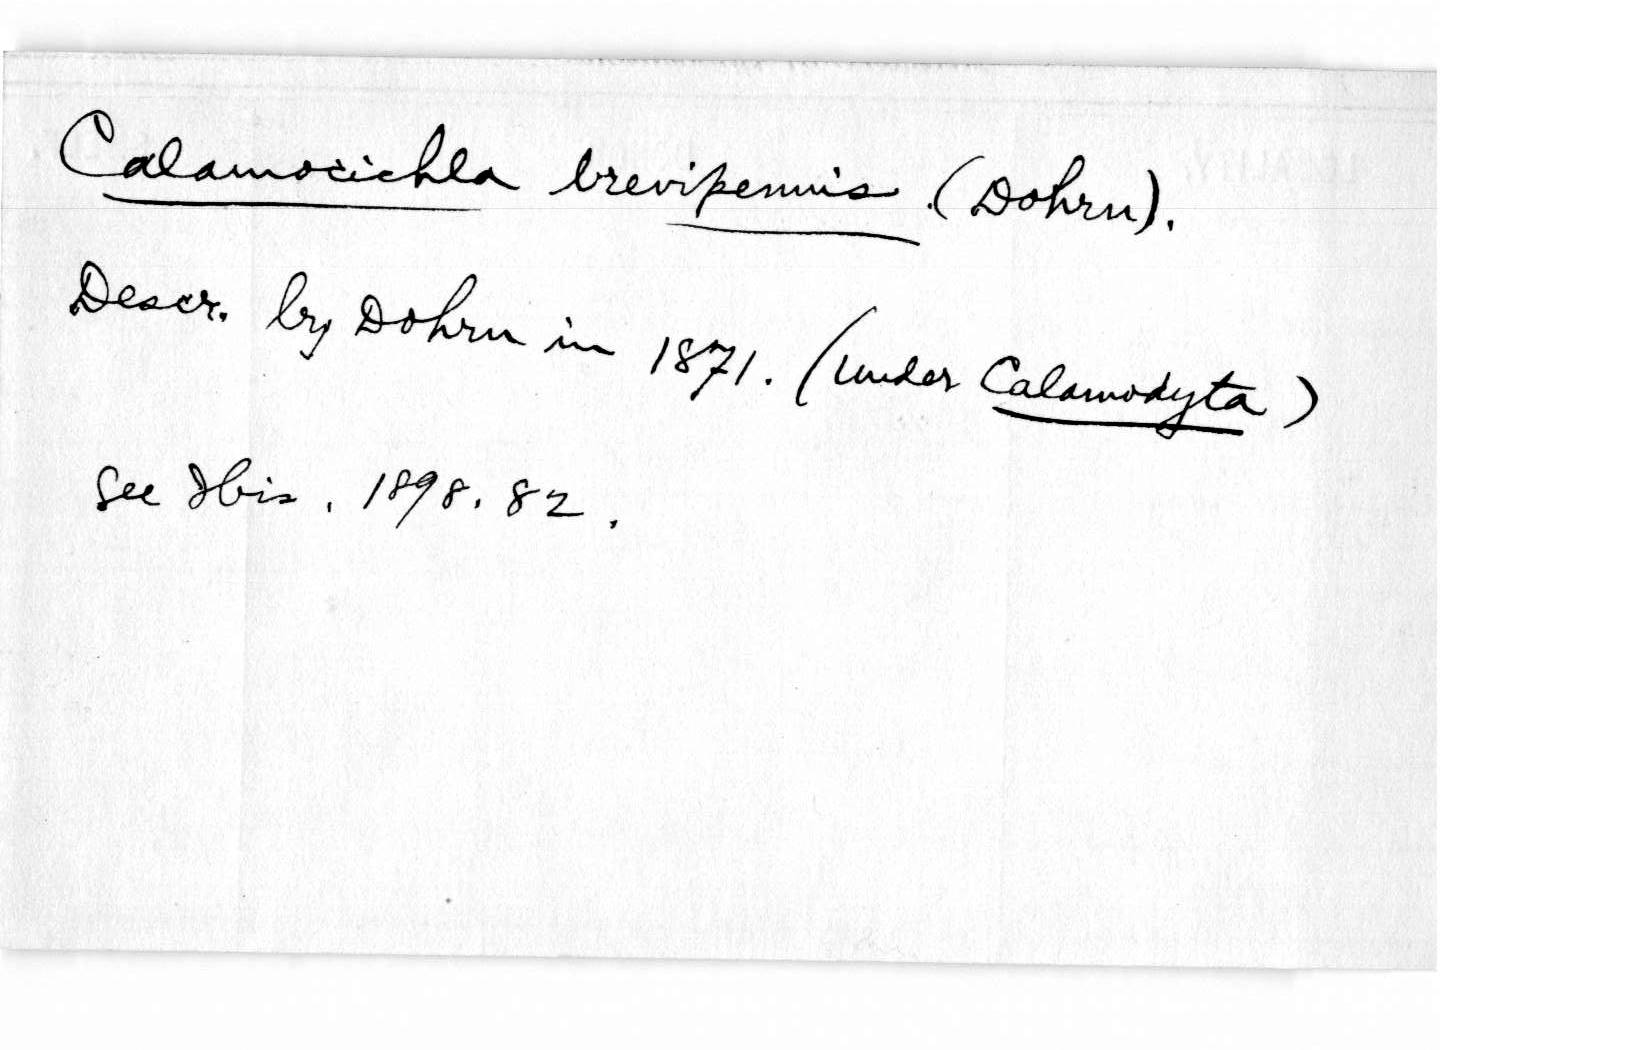 Calamocichla brevipennis (Dohrn).
Descr. by Dohrn in 1871. (under Calamodyta)
See Ibis. 1898. 82.